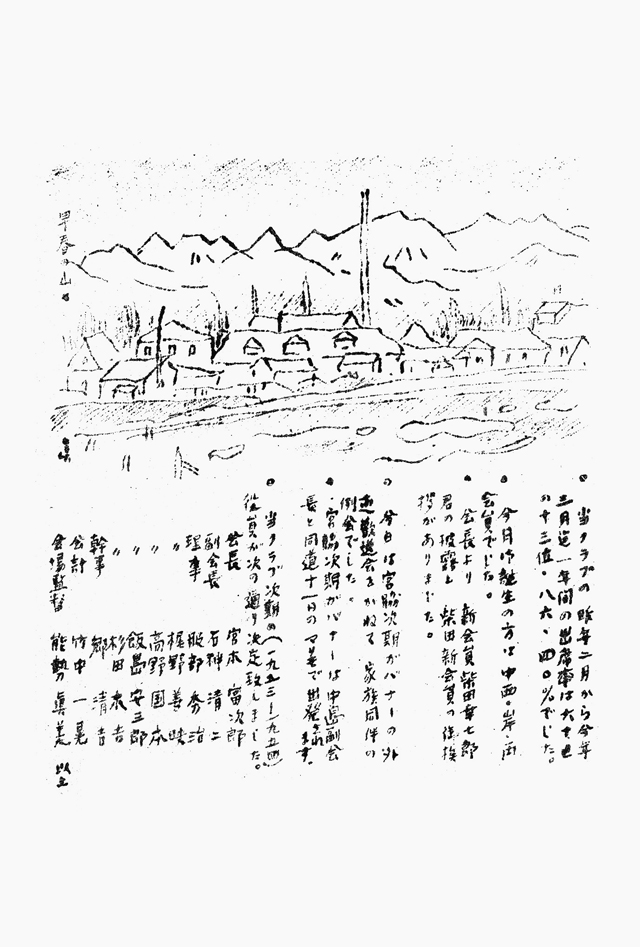 早春の山
当クラブの昨年二月から今年
三月迄一年間の出席率は六十七
の十三位。八六、四〇%でした。
今月御誕生の方は中西・岸・両
会員でした。
会長より 新会員柴田幸七郎
君の披露と 柴田新会員の御挨
拶がありました。
今日は宮脇次期ガバナーの外
遊歓送会をかねて 家族同伴の
例会でした。
宮脇次期ガバナーは中島副会
長と同道十一日のマ で出発されます。
当クラブ次期の(一九五三―一九五四)
役員が次の通り決定致しました。
会長 宮本富次郎
副会長 石神清二
理事 服部秀治
〃 梶野善映
〃 高野国本
〃 飯島安三郎
〃 杉田末吉
幹事 郷 清吉
会計 竹中一晃
会場監督 能勢眞美
以上